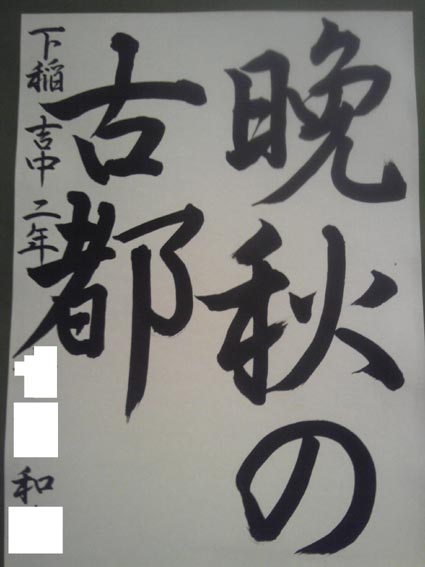 晩秋の
古都
下稲吉中二年
和